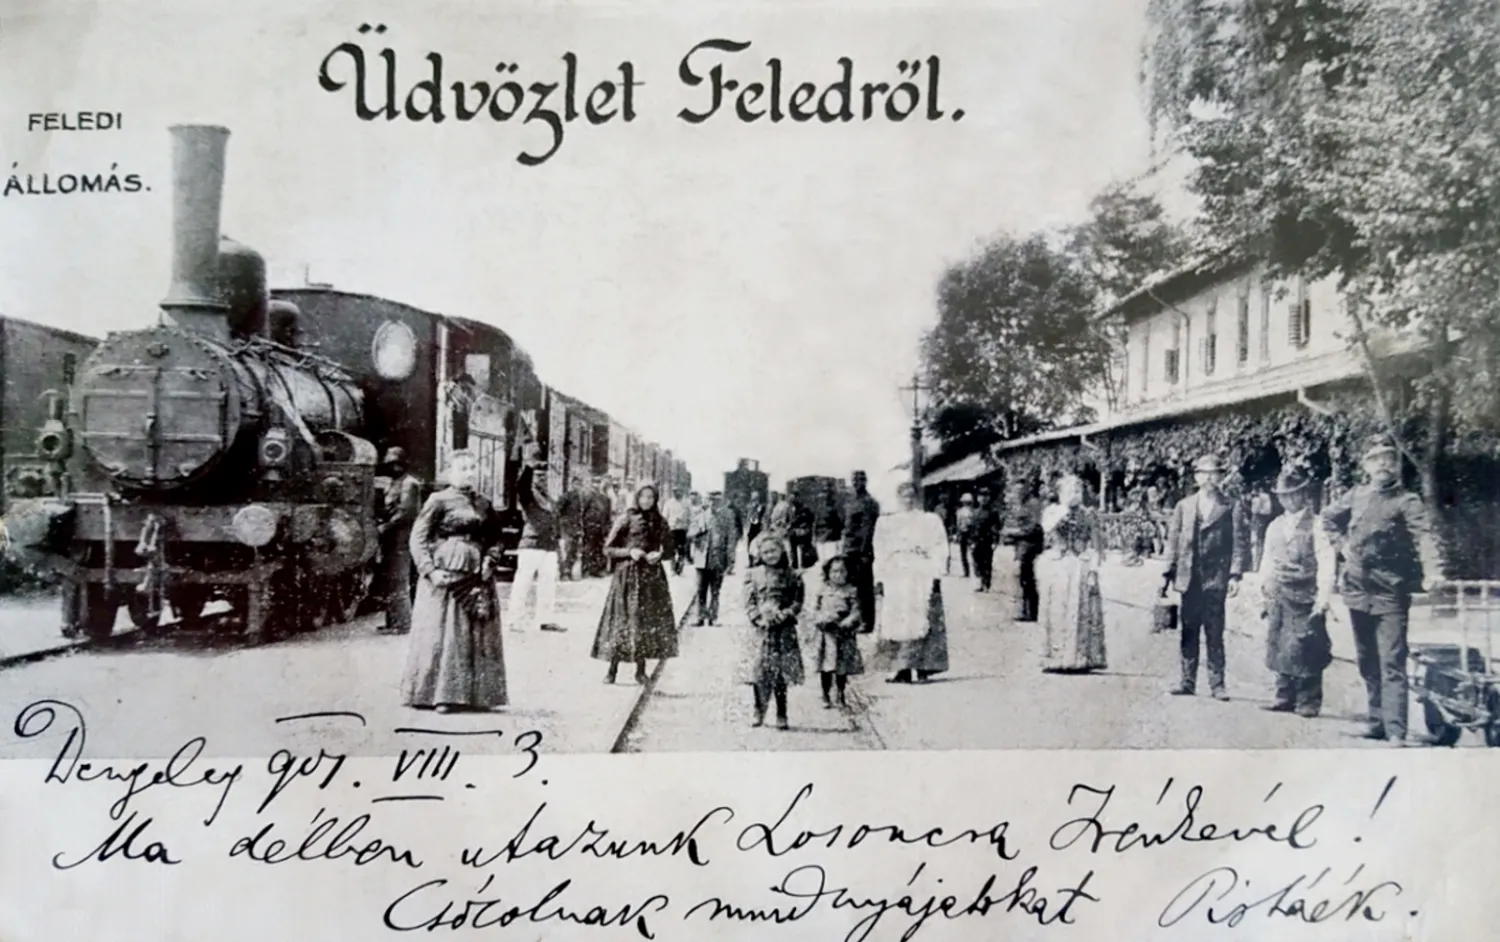 Üdvözlet Feledről.
FELEDI
ÁLLOMÁS.
907. VIII. 3.
Ma délben utazunk Losoncra Irénkével!
Csókolnak mindnyájatokat Pistáék.